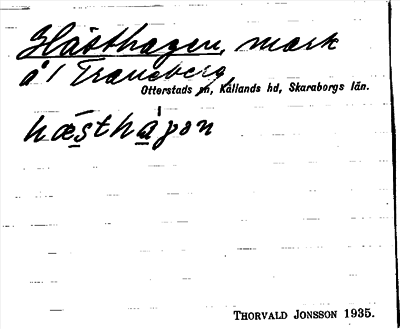 Hästhagen, mark
å 1 Traneberg,
Otterstads sn, Kållands hd, Skaraborgs län.
hæsthàgɷn
THORVALD JONSSON 1935.